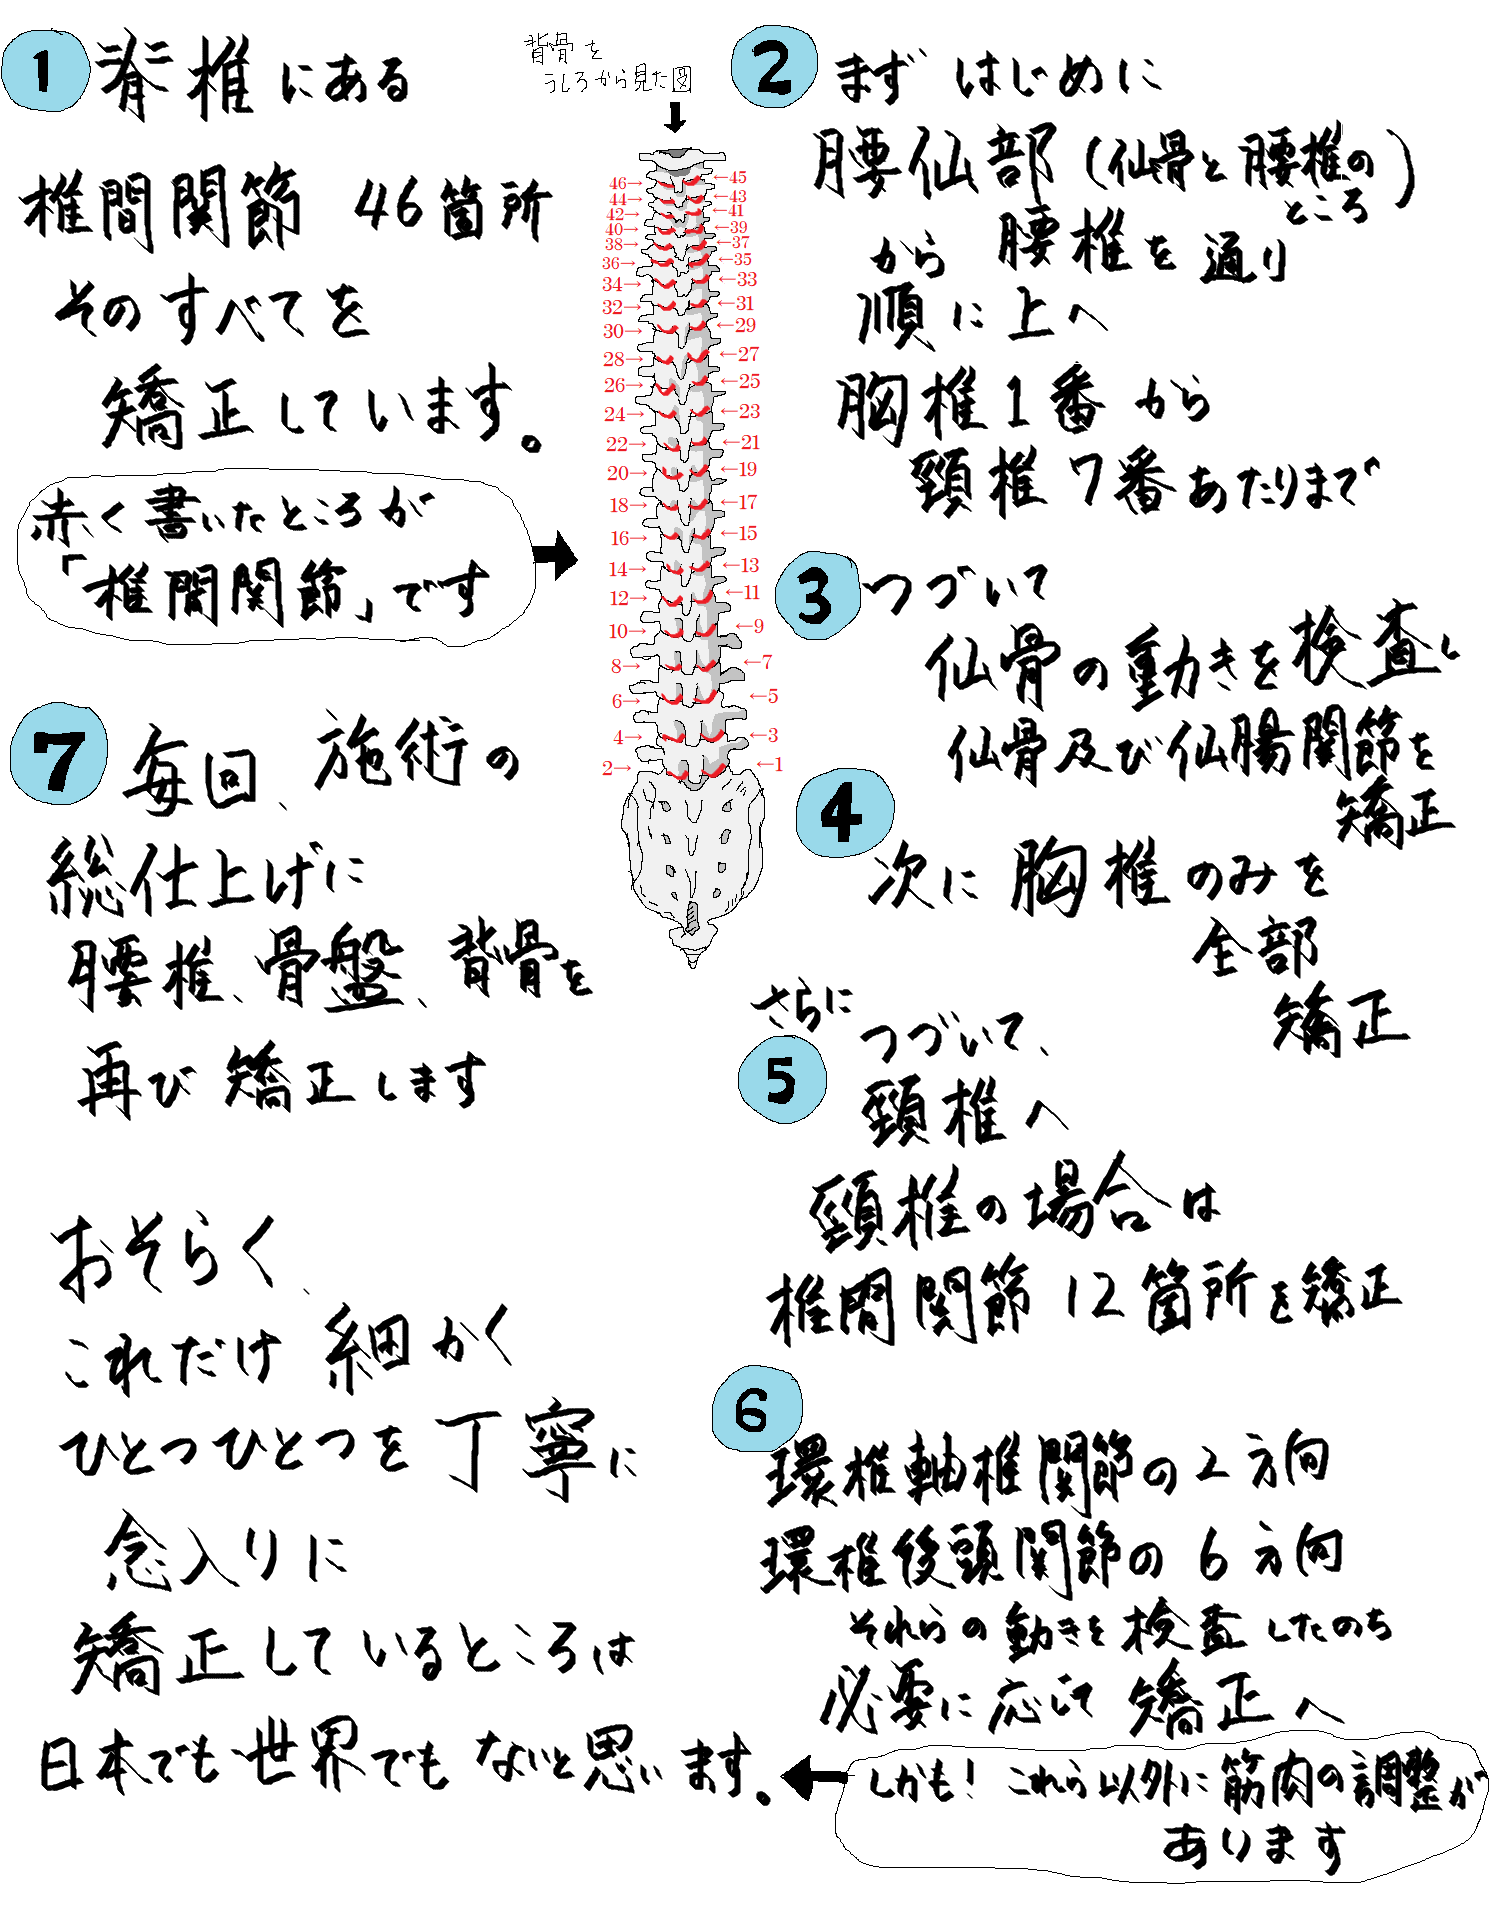 1 脊椎にある
椎間関節 46箇所
そのすべてを
矯正しています。
赤く書いたところが
「椎間関節」です
背骨を
うしろから見た図
46→ ←45
44→ ←43
42→ ←41
40→ ←39
38→ ←37
36→ ←35
34→ ←33
32→ ←31
30→ ←29
28→ ←27
26→ ←25
24→ ←23
22→ ←21
20→ ←19
18→ ←17
16→ ←15
14→ ←13
12→ ←11
10→ ←9
8→ ←7
6→ ←5
4→ ←3
2→ ←1
2 まず はじめに
腰仙部(仙骨と腰椎の
ところ)
から 腰椎を通り
順に上へ
胸椎1番から
頸椎7番あたりまで
3 つづいて
仙骨の動きを検査し
仙骨及び仙腸関節を
矯正
4 次に胸椎のみを
全部
矯正
さらに
5 つづいて、
頸椎へ
頸椎の場合は
椎間関節12箇所を矯正
6
環椎軸椎関節の2方向
環椎後頭関節の6方向
それらの動きを検査したのち
必要に応じて矯正へ
しかも! これら以外に筋肉の調整が
あります
7 毎回、施術の
総仕上げに
腰椎、骨盤、背骨を
再び矯正します
おそらく、
これだけ細かく
ひとつひとつを丁寧に
念入りに
矯正しているところは
日本でも世界でもないと思います。